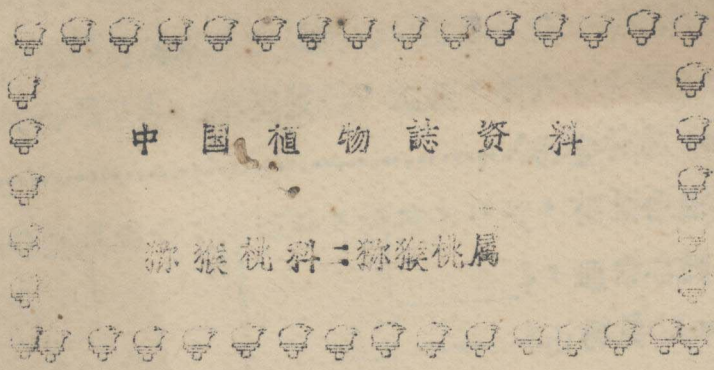 中国植物誌资料
猕猴桃科：猕猴桃属